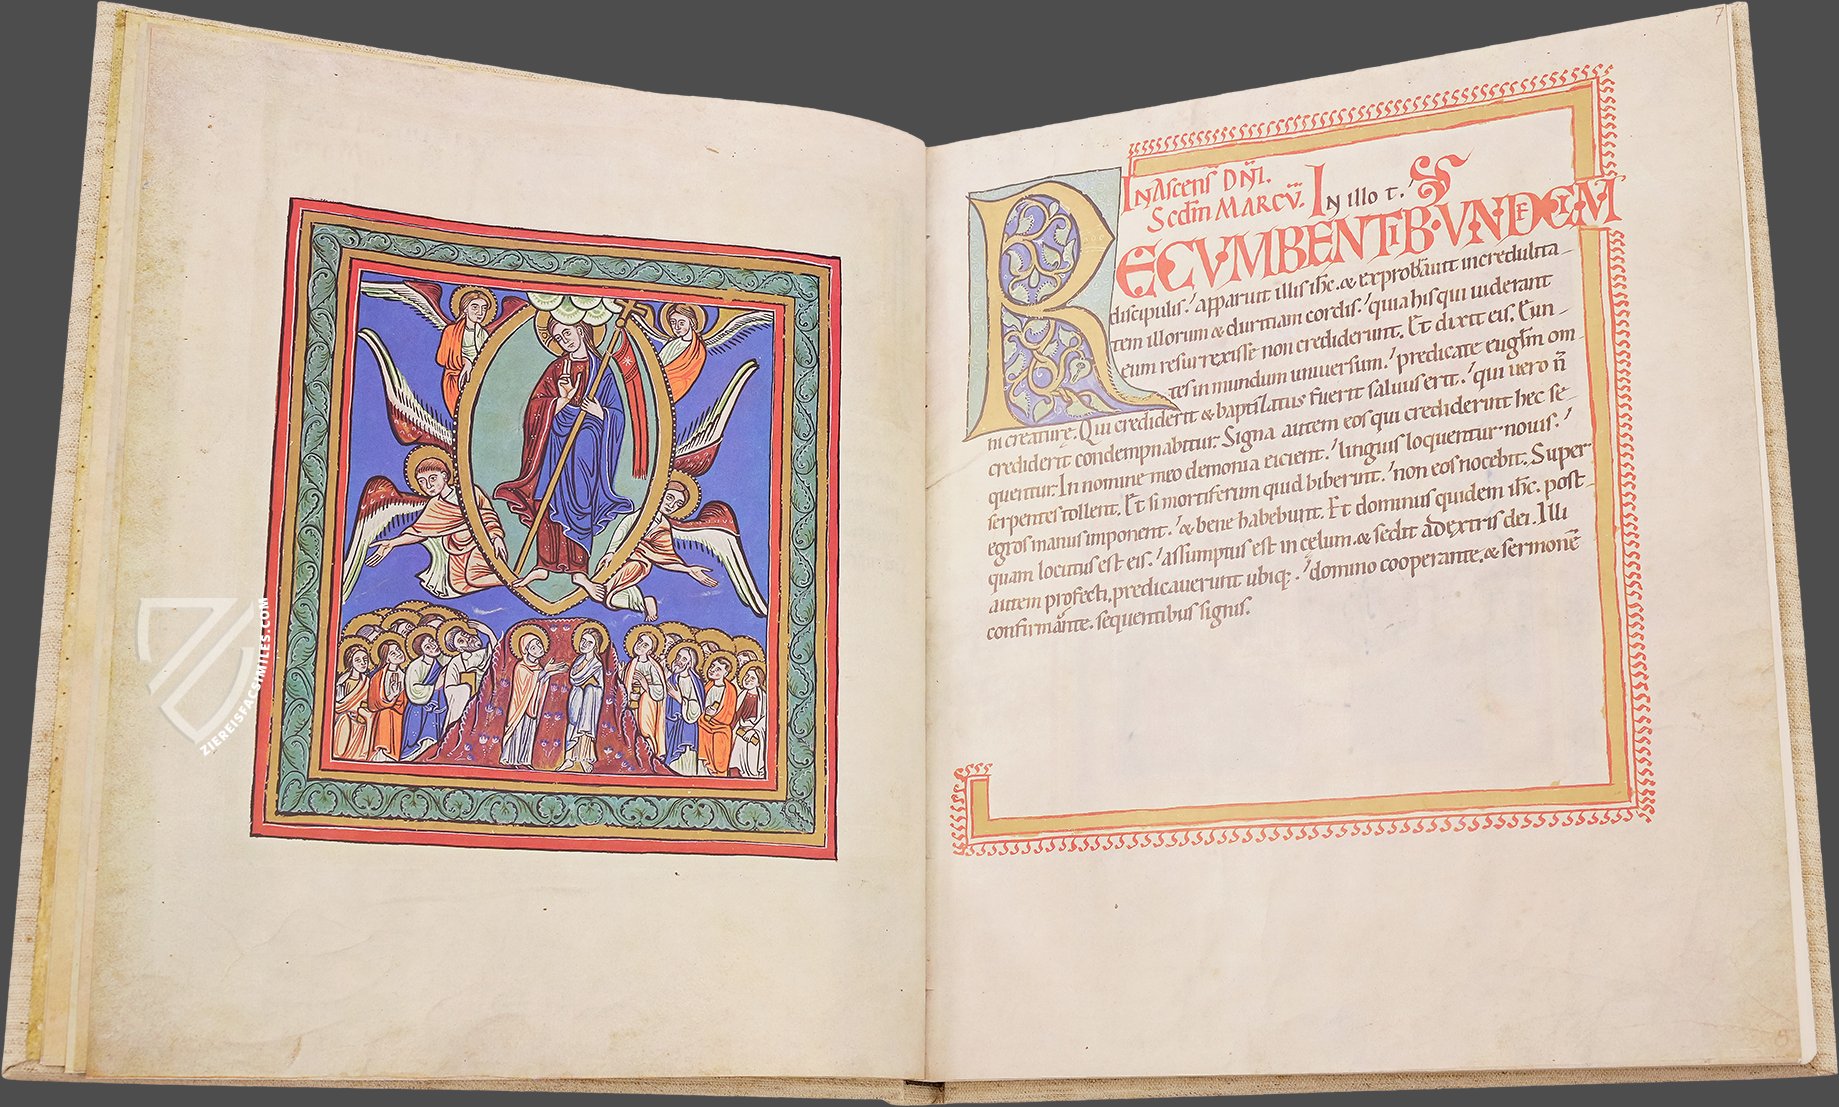 ZIEREISFACSIMILES.COM
In Ascens̄ Dn̄i.
Scd̄m MARCV̄. In illo t.
RECVMBENTIB· VNDECIM
discipulis. apparuit illis ih̄c. & exprobrauit incredulita-
tem illorum & duritiam cordis. quia his qui uiderant
eum resurrexisse non crediderunt. Et dixit eis. Eun-
tes in mundum uniuersum. predicate eugl̄m om-
ni creature. Qui crediderit & baptizatus fuerit saluus erit. qui uero n̄
crediderit condempnabitur. Signa autem eos qui crediderint hec se-
quentur. In nomine meo demonia eicient. linguis loquentur nouis.
serpentes tollent. Et si mortiferum quid biberint. non eos nocebit. Super
egros manus imponent. & bene habebunt. Et dominus quidem ih̄c. post-
quam locutus est eis. assumptus est in celum. & sedit ad extris dei. Illi
autem profecti, predicauerunt ubiq;. domino cooperante. & sermonē
confirmante. sequentibus signis.